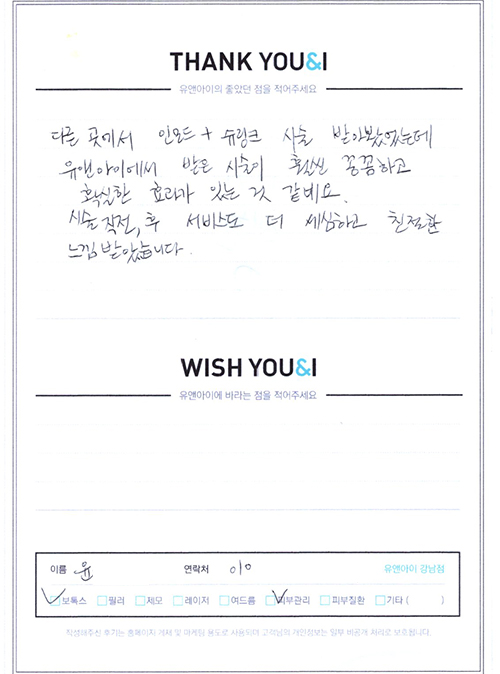 THANK YOU&I
유앤아이의 좋았던 점을 적어주세요
다른 곳에서 인모드 + 슈링크 시술 받아봤었는데
유앤아이에서 받은 시술이 훨씬 꼼꼼하고
확실한 효과가 있는 것 같네요.
시술 직전, 후 서비스도 더 세심하고 친절한
느낌 받았습니다.
WISH YOU&I
유앤아이에 바라는 점을 적어주세요
이름 윤 연락처 010 유앤아이 강남점
보톡스 필러 제모 레이저 여드름 피부관리 피부질환 기타 ( )
작성해주신 후기는 홈페이지 게재 및 마케팅 용도로 사용되며 고객님의 개인정보는 일부 비공개 처리로 보호됩니다.